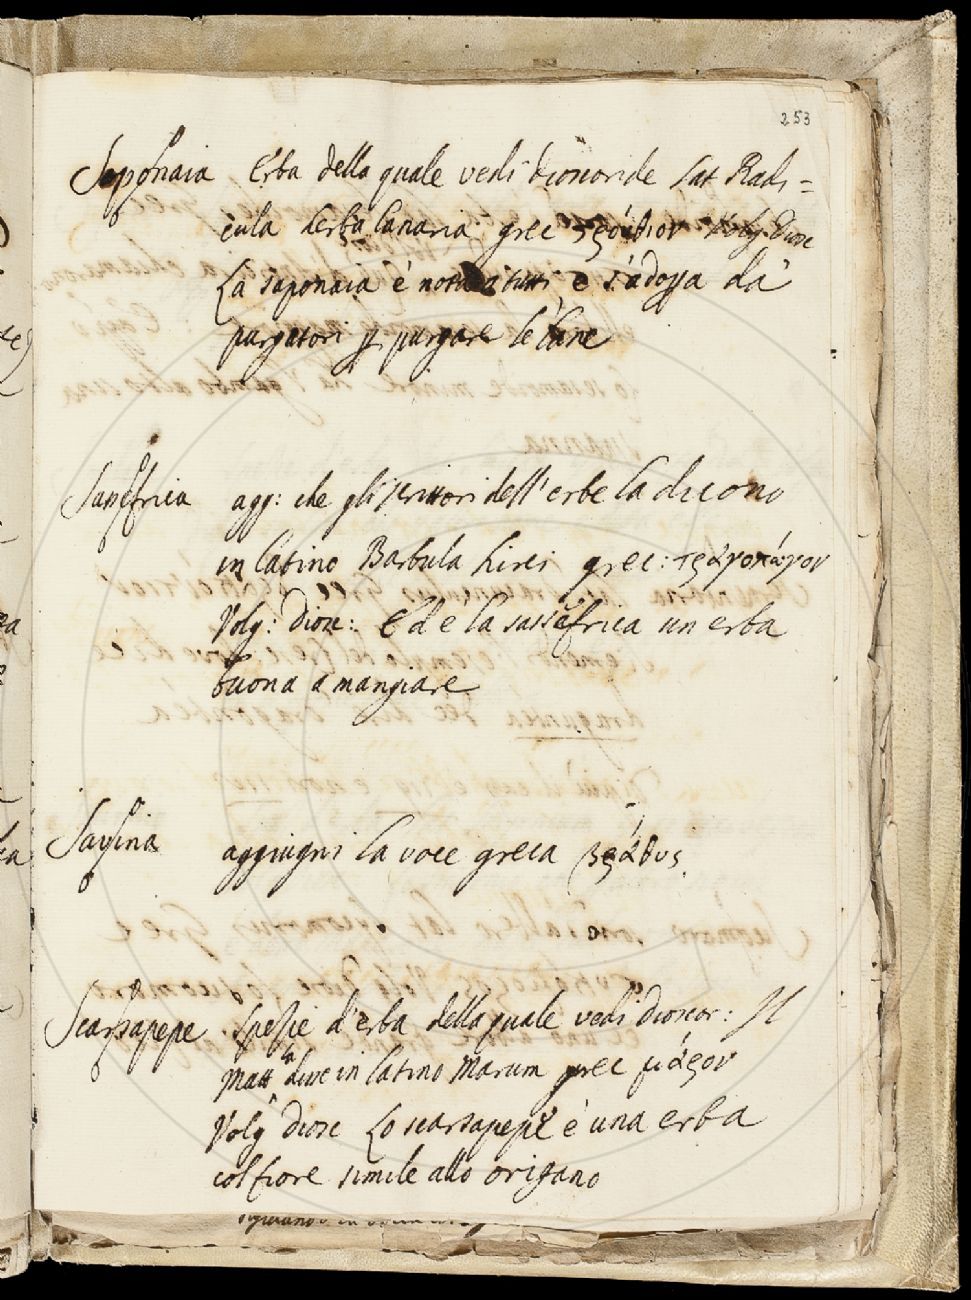 253
Saponaia Erba della quale vedi Dioscoride Lat Radi=
cula Lerba Lanaria grec στρούθιον Volg. Diosc
La saponaia è nota a tutti e s'adopra da
purgatori p purgare le lane
Sassefrica agg: che gli scrittori dell'erbe la dicono
in latino Barbula hirci grec: τράγοπώγον
Volg: Diosc: Ed e la sassefrica un erba
buona a mangiare
Savina aggiugni la voce greca βράθυς
Scarsapepe spezie d'erba della quale vedi Dioscor: Il
Matt la dice in latino Marum grec μάρον
Volg Diosc Lo scarsapepe è una erba
col fiore simile allo origano